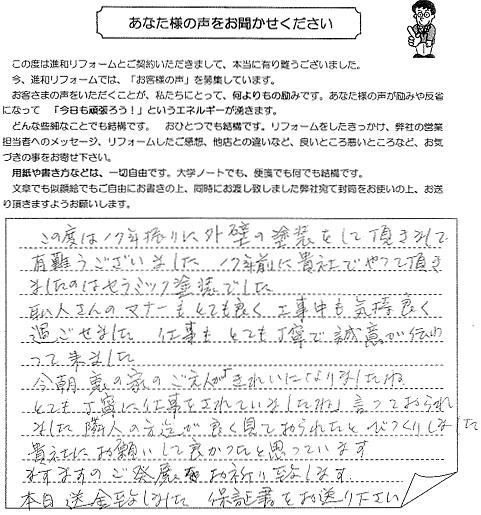 あなた様の声をお聞かせください
この度は進和リフォームとご契約いただきまして、本当に有り難うございました。
今、進和リフォームでは、「お客様の声」を募集しています。
お客さまの声をいただくことが、私たちにとって、何よりもの励みです。あなた様の声が励みや反省
になって　「今日も頑張ろう！」というエネルギーが湧きます。
どんな些細なことでも結構です。　おひとつでも結構です。リフォームをしたきっかけ、弊社の営業
担当者へのメッセージ、リフォームしたご感想、他店との違いなど、良いところ悪いところなど、お気
づきの事をお寄せ下さい。
用紙や書き方などは、一切自由です。大学ノートでも、便箋でも何でも結構です。
文章でも似顔絵でもご自由にお書きの上、同時にお渡し致しました弊社宛て封筒をお使いの上、お送
り頂きますようお願いします。
この度は17年振りに外壁の塗装をして頂きまして
有難うございました　17年前に貴社でやって頂き
ましたのはセラミック塗装でした
職人さんのマナーもとても良く　工事中も気持良く
過ごせました　仕事も　とても丁寧で　誠意が伝わ
って来ました
今朝　裏の家のご主人が「きれいになりましたね
とても丁寧に仕事をされていましたね」と言っておられ
ました　隣人の方迄が良く見ておられたと　びっくりしました
貴社にお願いして良かったと思っています
ますますのご発展をお祈り致します
本日送金致しました　保証書をお送り下さい